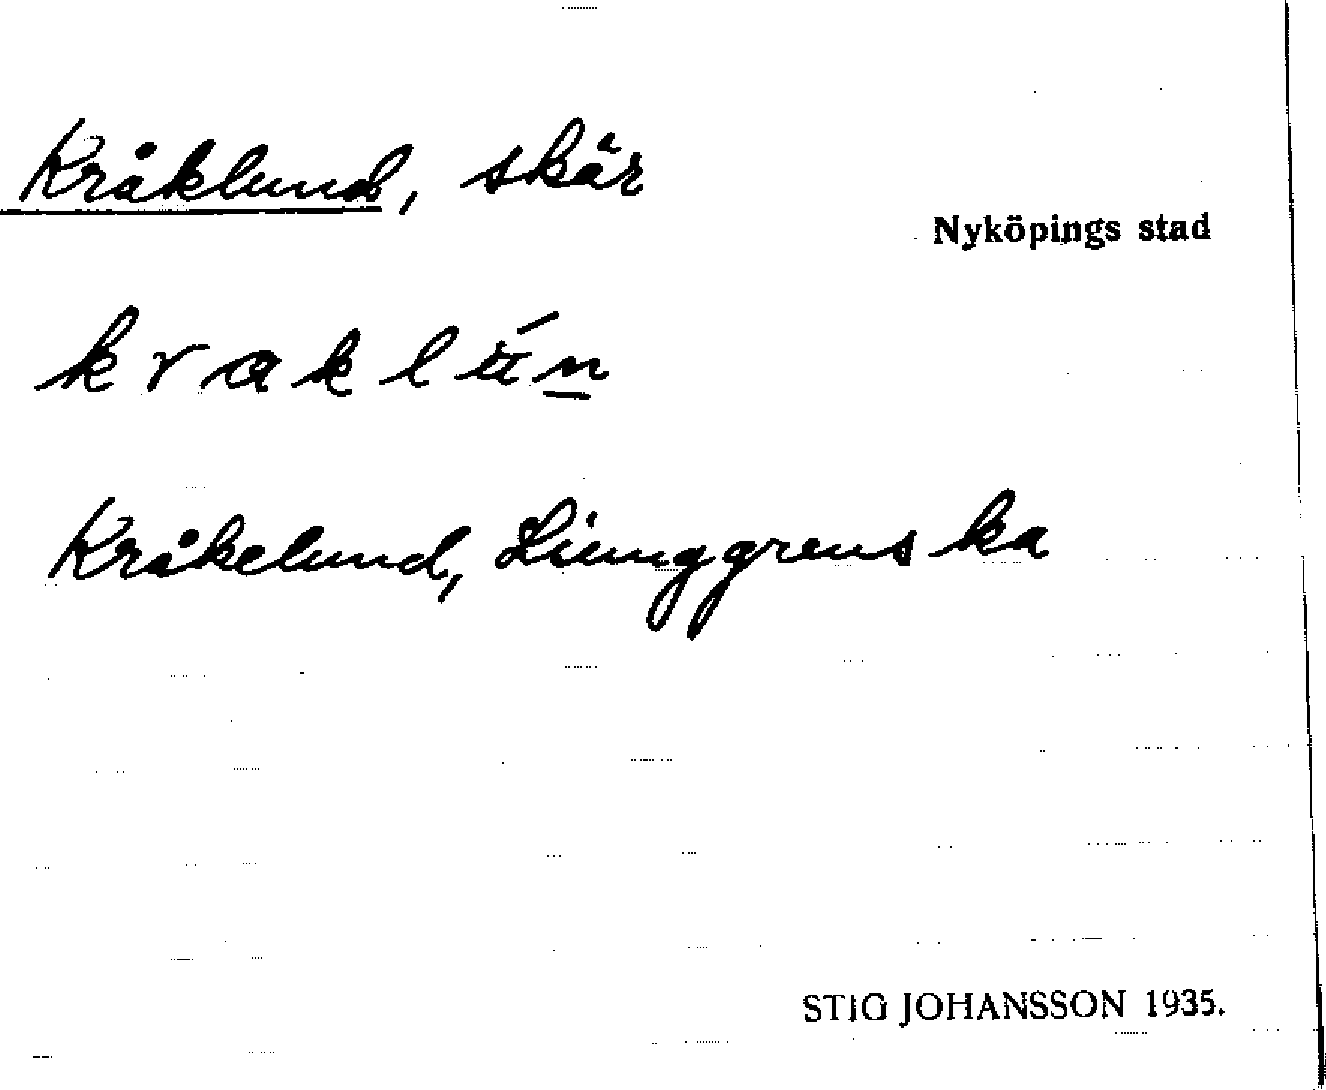 Kråklund, skär
Nyköpings stad
k r a k l ú n
Kråkelund, Liunggrens ka
STIG JOHANSSON 1935.